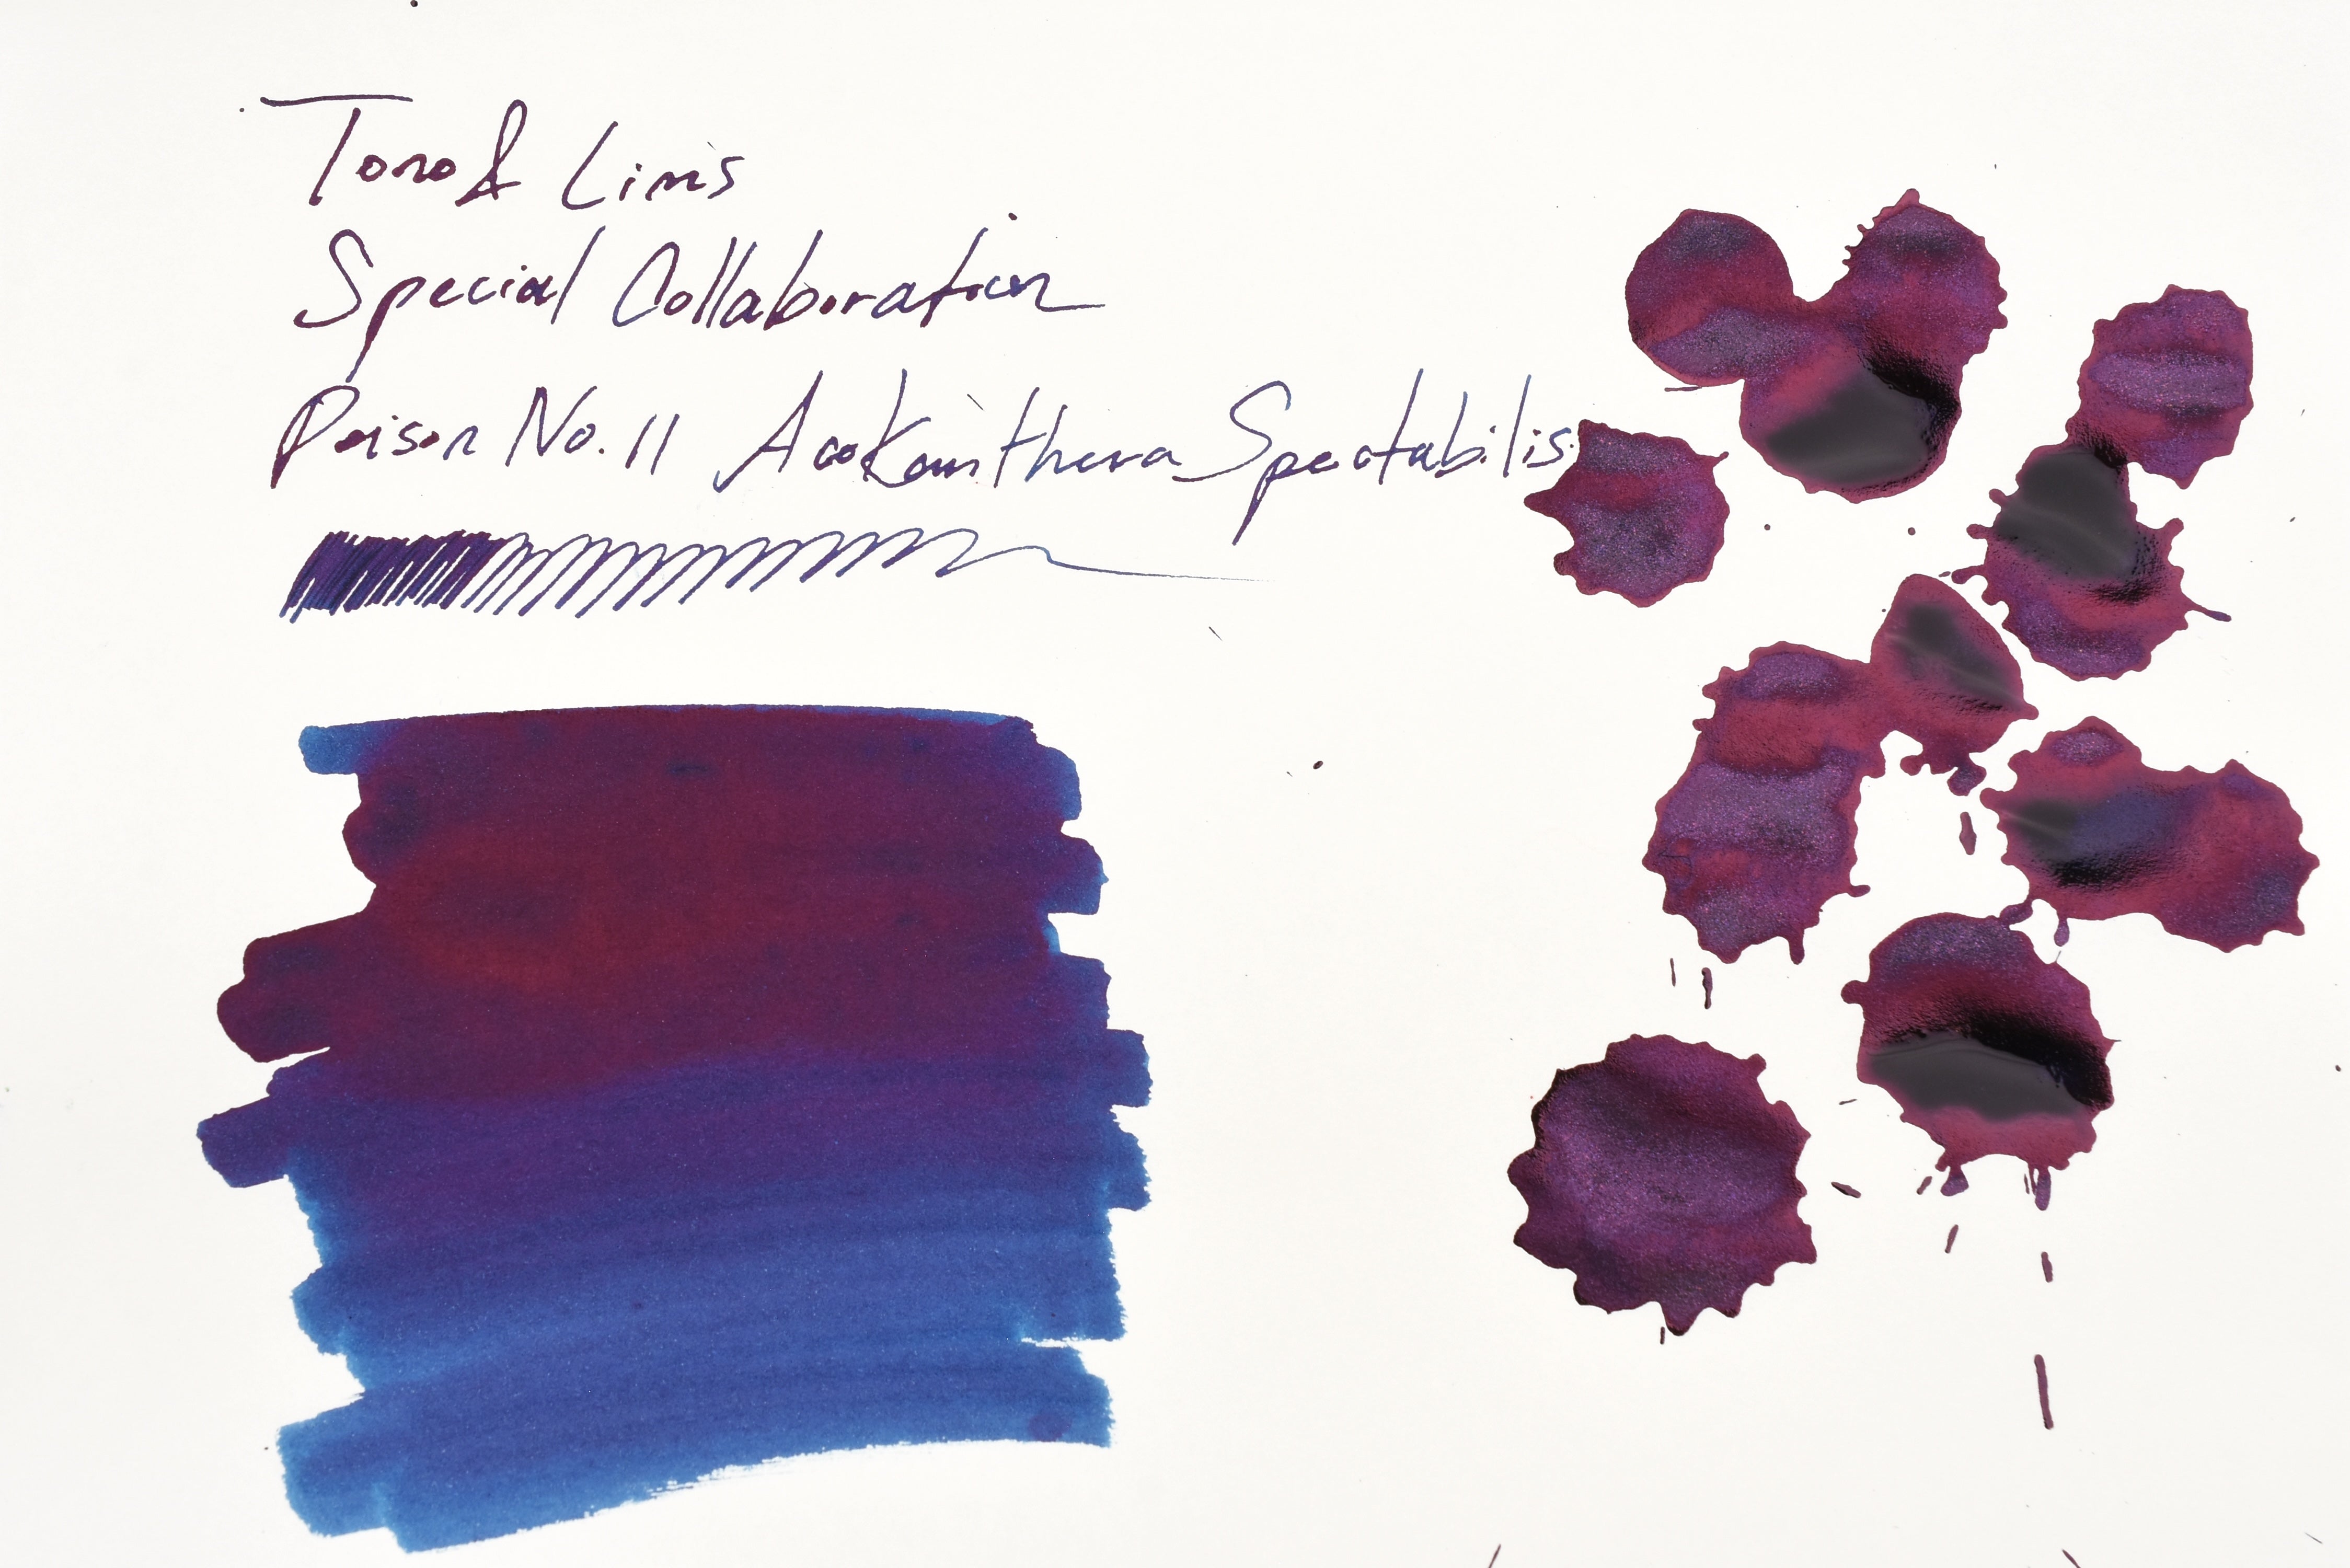 Tono & Lims
Special Collaboration
Poison No. 11 Acokanthera Spectabilis